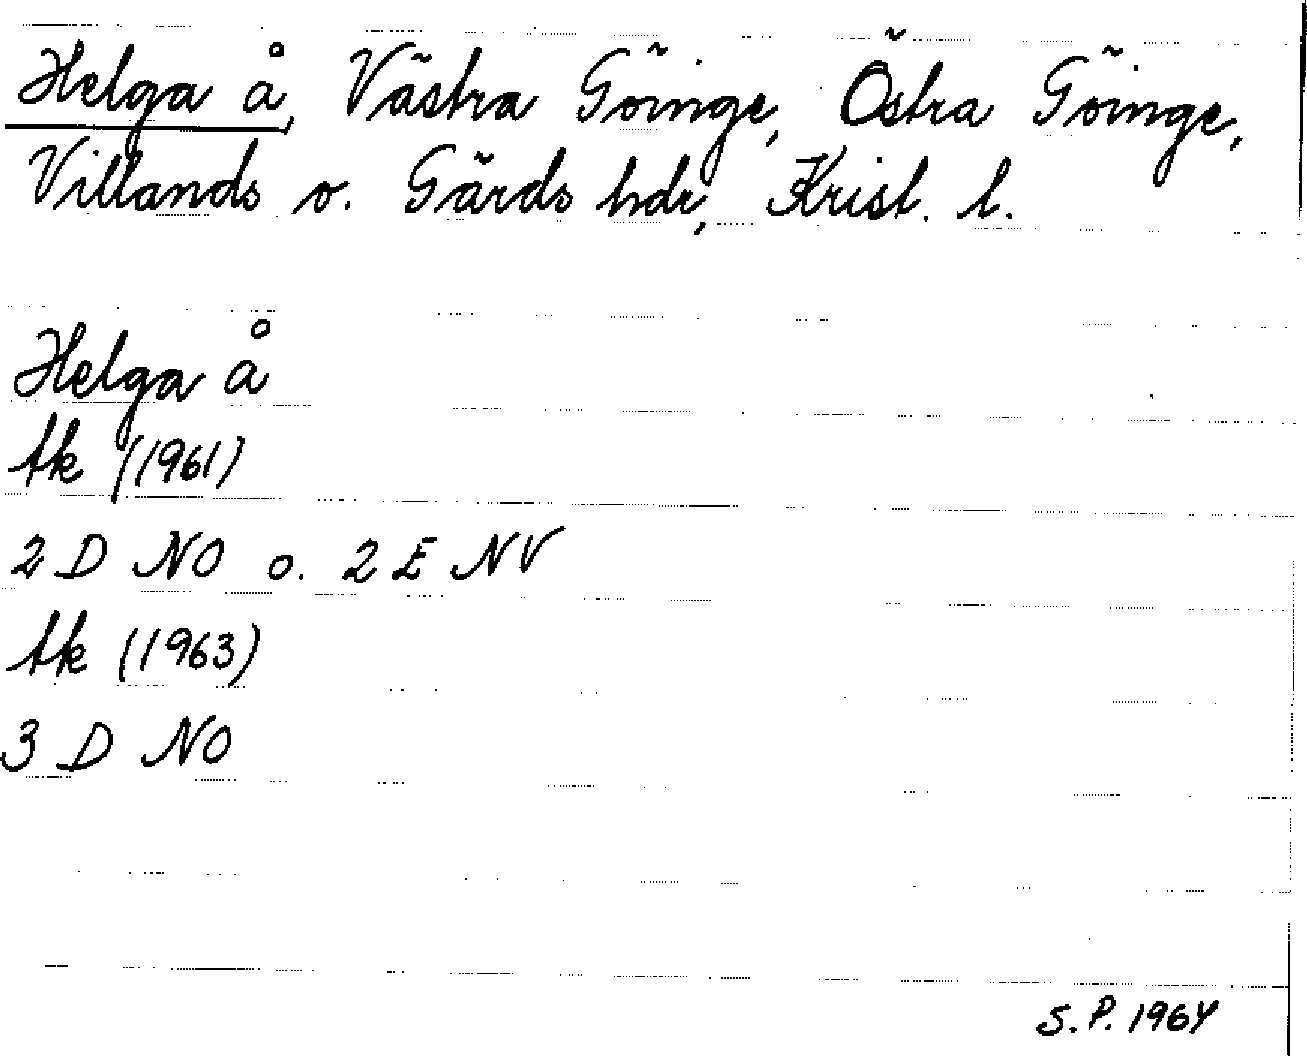 Helga å, Västra Göinge, Östra Göinge,
Villands o. Gärds hdr, Krist. l.
Helga å
tk (1961)
2 D NO o. 2 E NV
tk (1963)
3 D NO
S.P. 1964